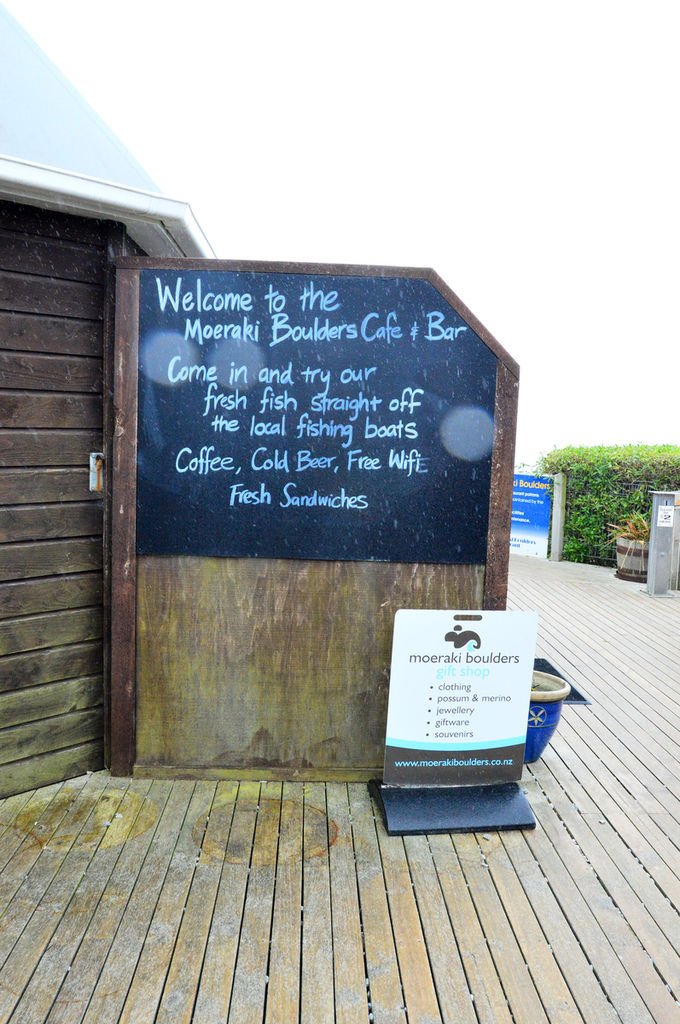 Welcome to the
Moeraki Boulders Cafe & Bar
Come in and try our
fresh fish straight off
the local fishing boats
Coffee, Cold Beer, Free WiFi
Fresh Sandwiches
moeraki boulders
gift shop
• clothing
• possum & merino
• jewellery
• giftware
• souvenirs
www.moerakiboulders.co.nz
Boulders